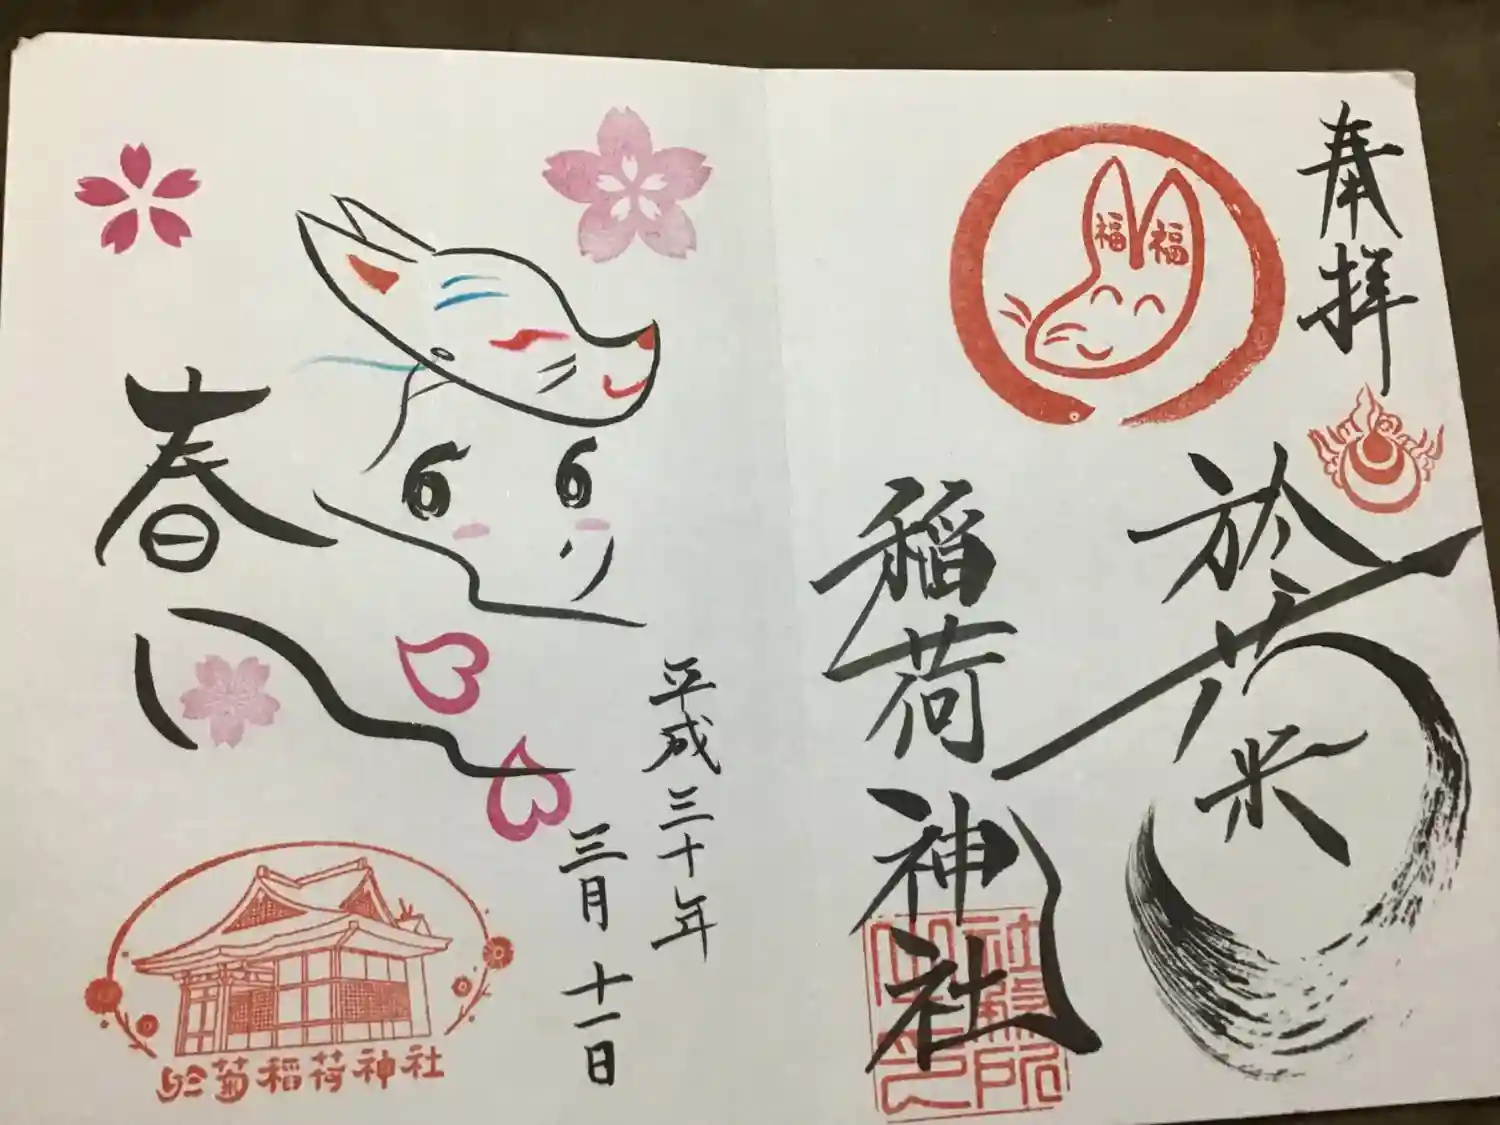 奉拝
福福
於菊
稲荷神社
社務所之印
平成三十年
三月十一日
春
い
於菊稲荷神社